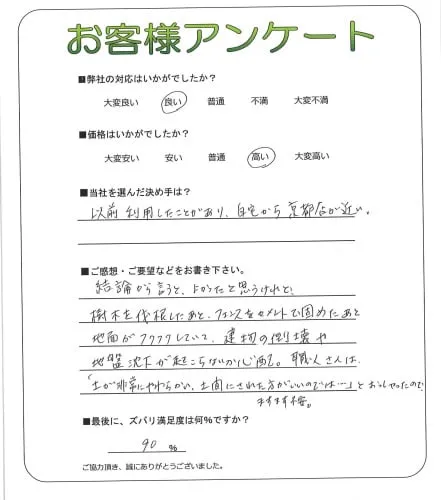 お客様アンケート
■弊社の対応はいかがでしたか？
大変良い 良い 普通 不満 大変不満
■価格はいかがでしたか？
大変安い 安い 普通 高い 大変高い
■当社を選んだ決め手は？
以前利用したことがあり、自宅から京都店が近い。
■ご感想・ご要望などをお書き下さい。
結論から言うと、よかったと思うけれど、
樹木を伐根したあと、フェンスをセメントで固めたあと
地面がフワフワしていて、建物の倒壊や
地盤沈下が起こらないか心配。職人さんは、
「土が非常にやわらかい、土間にされた方がいいのでは…」とおっしゃったので
ますます不安。
■最後に、ズバリ満足度は何％ですか？
90 %
ご協力頂き、誠にありがとうございました。